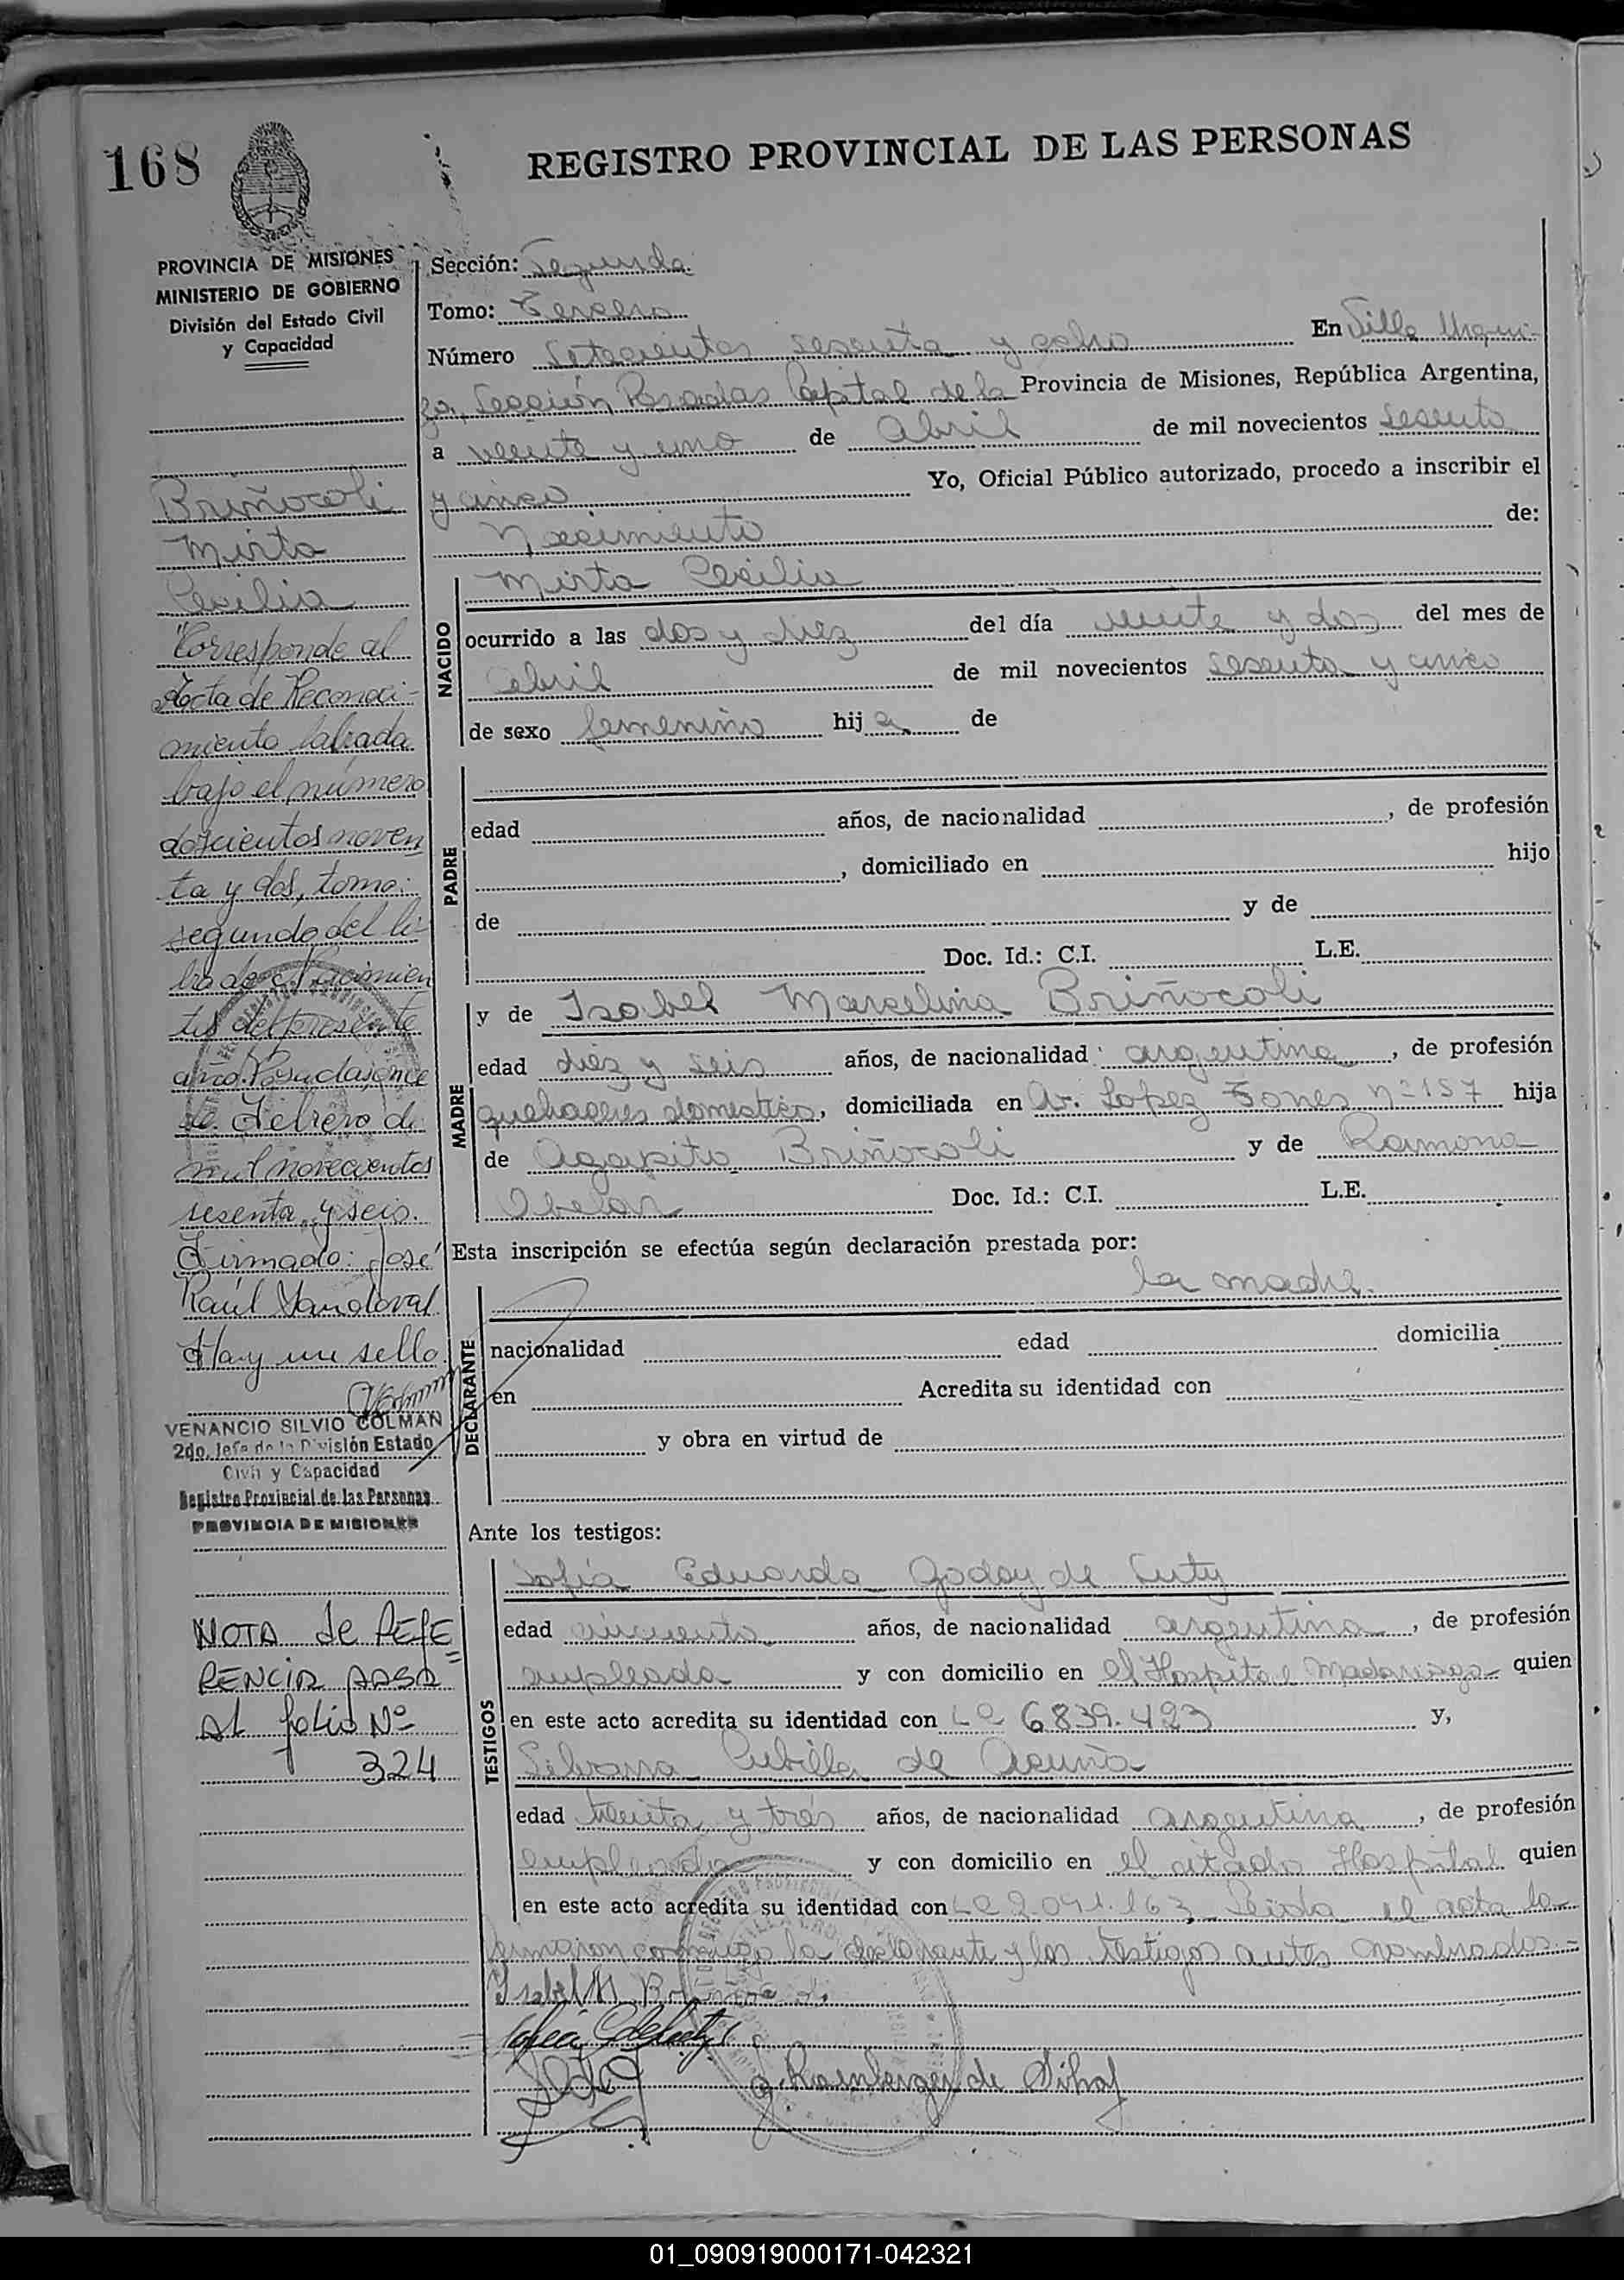 168
REGISTRO PROVINCIAL DE LAS PERSONAS
PROVINCIA DE MISIONES
MINISTERIO DE GOBIERNO
División del Estado Civil
y Capacidad
Briñocoli
Mirta
Cecilia
"Corresponde al
Acta de Reconoci-
miento labrada
bajo el número
doscientos noven
ta y dos, tomo:
segundo del li-
bro de Nacimien
tos del presente
año. Posadas, once
de Febrero de
mil novecientos
sesenta y seis.
Firmado: José
Raúl Sandoval
Hay un sello
VENANCIO SILVIO COLMAN
2do. Jefe de la División Estado
Civil y Capacidad
Registro Provincial de las Personas
PROVINCIA DE MISIONES
NOTA de REFE=
RENCIA PASA
AL folio Nº
324
Sección: Segunda
Tomo: Tercero
Número Setecientos sesenta y ocho En Villa Urqui-
za, Sección Posadas Capital de la Provincia de Misiones, República Argentina,
a veinte y uno de Abril de mil novecientos sesenta
y cinco Yo, Oficial Público autorizado, procedo a inscribir el
Nacimiento de:
NACIDO
Mirta Cecilia
ocurrido a las dos y diez del día veinte y dos del mes de
abril de mil novecientos sesenta y cinco
de sexo femenino hija de
PADRE
edad años, de nacionalidad , de profesión
, domiciliado en hijo
de y de
Doc. Id.: C.I. L.E.
MADRE
y de Isabel Marcelina Briñocoli
edad diez y seis años, de nacionalidad argentina, de profesión
quehaceres domestico, domiciliada en Av. Lopez Torres nº 157 hija
de Agapito Briñocoli y de Ramona
Obelar Doc. Id.: C.I. L.E.
Esta inscripción se efectúa según declaración prestada por:
la madre.
DECLARANTE
nacionalidad edad domicilia
en Acredita su identidad con
y obra en virtud de
Ante los testigos:
TESTIGOS
Sofía Eduarda Godoy de
edad cincuenta años, de nacionalidad argentina, de profesión
empleada y con domicilio en el Hospital Madariaga quien
en este acto acredita su identidad con LC 6839.423 y,
Silvana Cubilla de Acuña
edad treinta y tres años, de nacionalidad argentina, de profesión
empleada y con domicilio en el citado Hospital quien
en este acto acredita su identidad con LC 2.041.163 Leida el acta la
firmaron conmigo la declarante y los testigos antes nombrados.=
Isabel M. Briñocoli
01_090919000171-042321